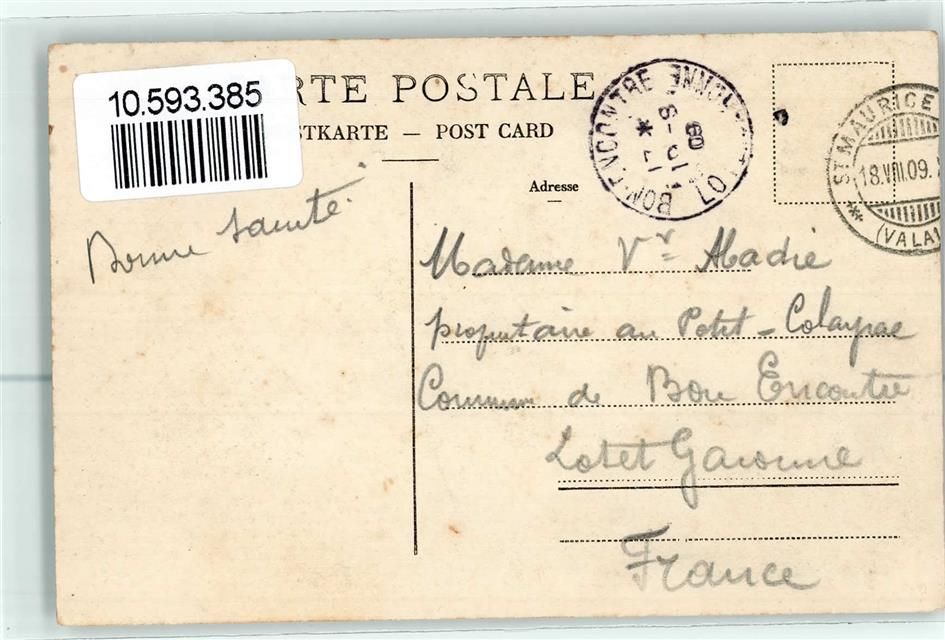 10.593.385
RTE POSTALE
STKARTE — POST CARD
BON-ENCONTRE
LO
ONNE
09
ST MAURICE
18.VIII.09.
(VALAI
Adresse
Bonne santé.
Madame Vᵛᵉ Abadie
propriétaire au Petit-Colayrac
Commune de Bon Encontre
Lot et Garonne
France